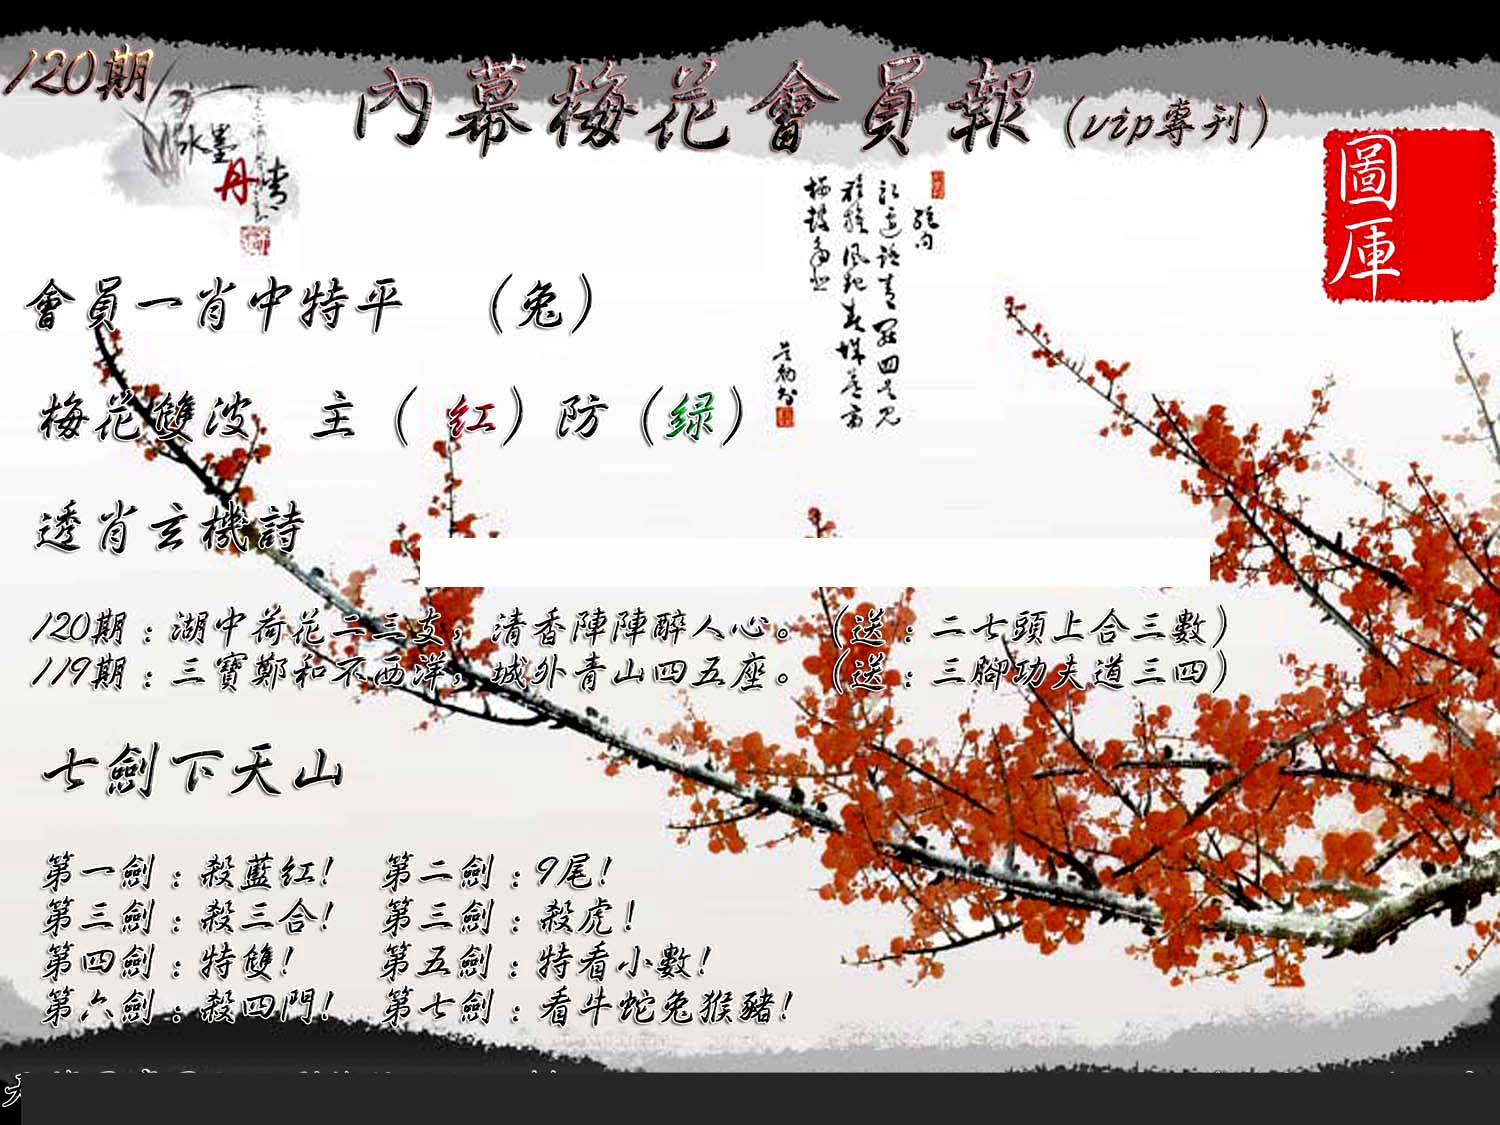 120期
內幕梅花會員報(vip專刊)
水墨
丹青
圖庫
會員一肖中特平 (兔)
梅花雙波 主(紅)防(绿)
透肖玄機詩
120期:湖中荷花二三支,清香陣陣醉人心。(送:二七頭上合三數)
119期:三寶鄭和下西洋,城外青山四五座。(送:三腳功夫道三四)
七劍下天山
第一劍:殺藍紅! 第二劍:9尾!
第三劍:殺三合! 第三劍:殺虎!
第四劍:特雙! 第五劍:特看小數!
第六劍:殺四門! 第七劍:看牛蛇兔猴豬!